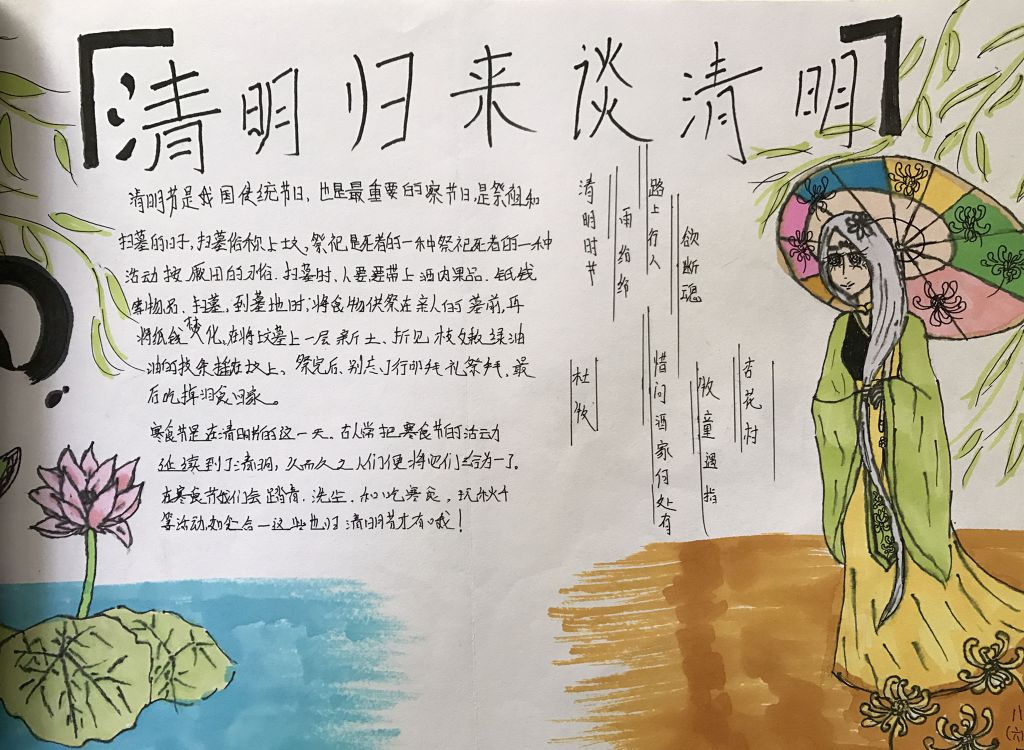 清明归来谈清明
清明节是我国传统节日，也是最重要的祭节日，是祭祖和
扫墓的日子，扫墓俗称上坟，祭祀死者的一种祭祀死者的一种
活动。按的习俗，扫墓时，人要携带上酒肉果品、纸钱
等物品，扫墓，到墓地时，将食物供祭在亲人的墓前，再
将纸钱焚化，在将坟墓上一层新土，折几枝嫩绿油
油的枝条插在坟上。祭完后，别忘了行叩拜礼祭拜，最
后吃掉酒食回家。
寒食节是在清明节的这一天，古人常把寒食节的活动
延续到了清明，久而久之人们便将它们合为一了。
在寒食节我们会踏青、洗尘、和吃寒食，
等活动，一这些也归清明节才有哦！
清明时节
雨纷纷
路上行人
欲断魂
惜问酒家何处有
牧童遥指
杏花村
杜牧
八
（六